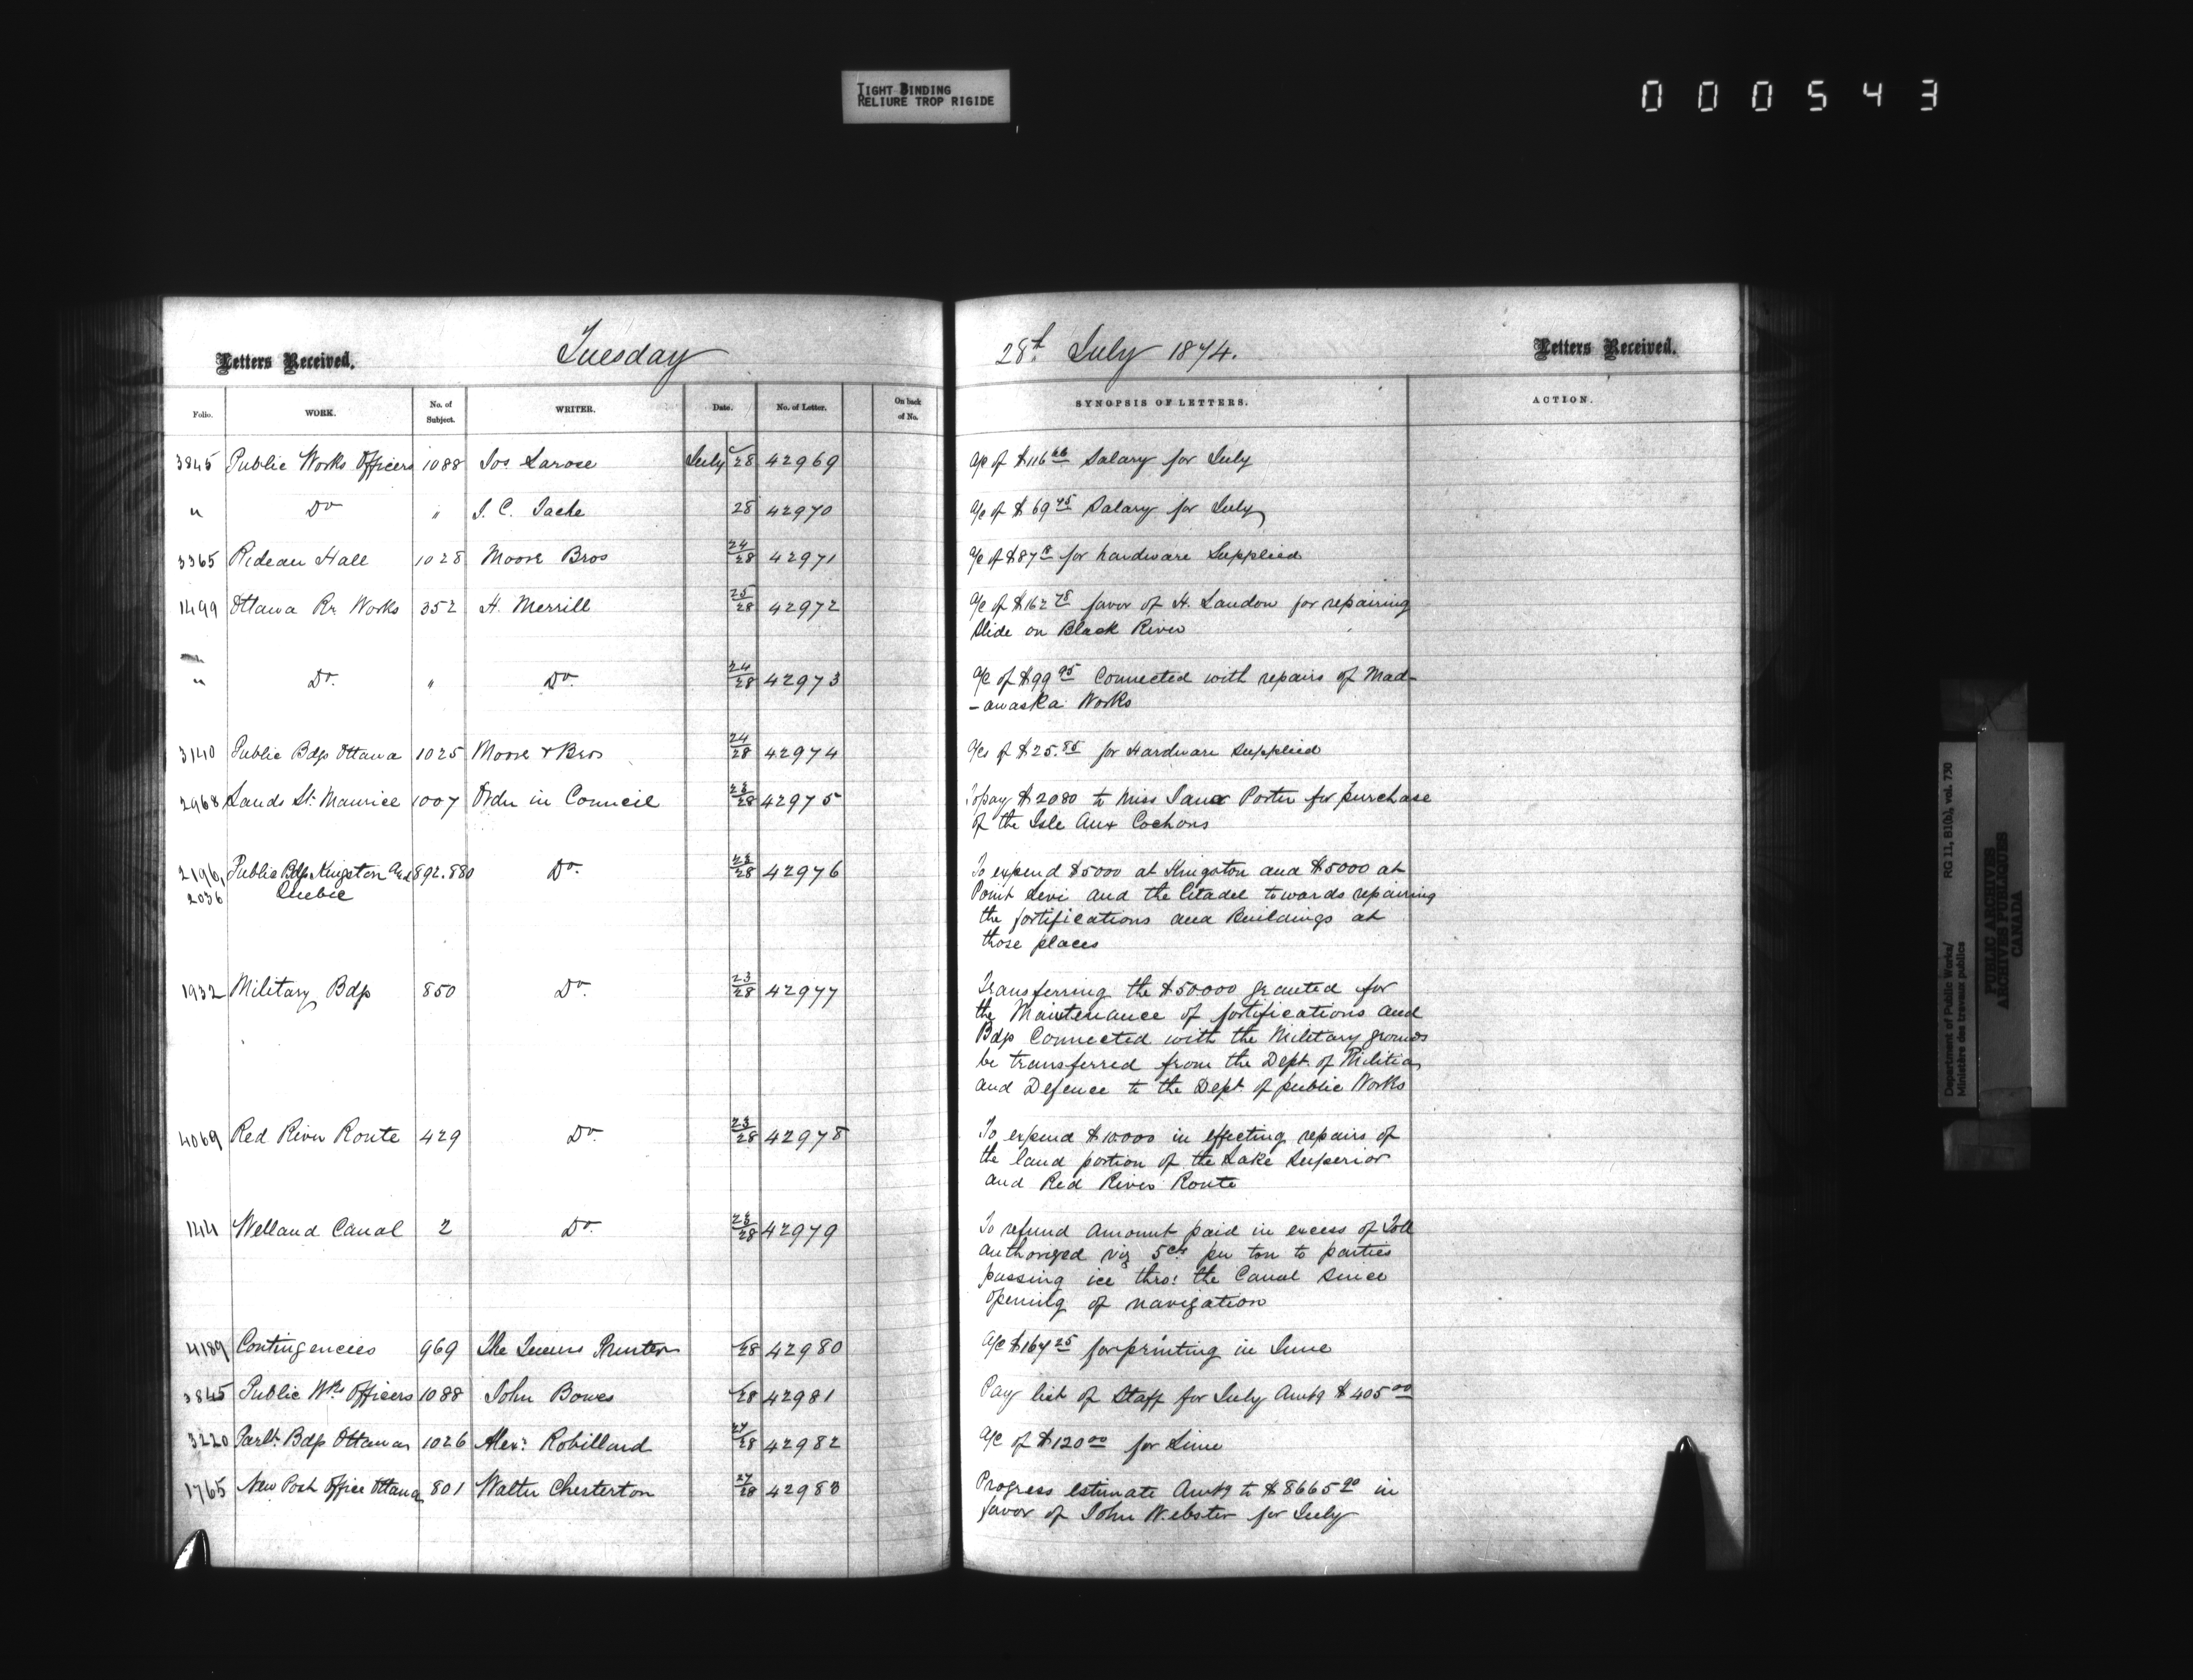 TIGHT BINDING
RELIURE TROP RIGIDE
000543
Letters Received.
Tuesday
28th July 1874.
Letters Received.
Folio. WORK. No. of Subject. WRITER. Date. No. of Letter. On back of No. SYNOPSIS OF LETTERS. ACTION.
3845 Public Works Officers 1088 Jos Larose July 28 42969 a/c of $116 66 Salary for July
" Do " J. C. Tache 28 42970 a/c of $69 45 Salary for July
3365 Rideau Hall 1028 Moore Bros 24/28 42971 a/c of $87 for hardware Supplied
1499 Ottawa Rr. Works 352 H. Merrill 25/28 42972 a/c of $162 78 favor of H. Landon for repairing
Slide on Black River
" Do. " Do. 24/28 42973 a/c of $99 95 Connected with repairs of Mad-
-awaska Works
3140 Public Bdgs Ottawa 1025 Moore & Bros 24/28 42974 a/cs of $25.85 for Hardware Supplied
2968 Lands St. Maurice 1007 Order in Council 23/28 42975 To pay $2080 to Miss Jane Porter for purchase
of the Isle Aux Cochons
2196, Public Bdgs Kingston and 892.880 Do. 23/28 42976 To expend $5000 at Kingston and $5000 at
2036 Quebec Point Levi and the Citadel towards repairing
the fortifications and Buildings at
those places
1932 Military Bdgs 850 Do. 23/28 42977 Transferring the $50000 granted for
the Maintenance of fortifications and
Bdgs Connected with the Military grounds
be transferred from the Dept. of Militia
and Defence to the Dept. of public Works
4069 Red River Route 429 Do. 23/28 42978 To expend $10000 in effecting repairs of
the land portion of the Lake Superior
and Red River Route
144 Welland Canal 2 Do. 23/28 42979 To refund Amount paid in excess of Toll
authorized viz 5cts per ton to parties
passing ice thro: the Canal since
opening of navigation
4189 Contingencies 969 The Queens Printer 28 42980 a/c $167 25 for printing in June
3845 Public Wks Officers 1088 John Bowes 28 42981 Pay list of Staff for July Amtg $405 00
3220 Parlt. Bdgs Ottawa 1026 Alex: Robillard 27/28 42982 a/c of $120 00 for Lime
1765 New Post Office Ottawa 801 Walter Chesterton 27/28 42983 Progress estimate Amtg to $8665 90 in
favor of John Webster for July
Department of Public Works/ RG 11, B1(b), vol. 730
Ministère des travaux publics
PUBLIC ARCHIVES
ARCHIVES PUBLIQUES
CANADA